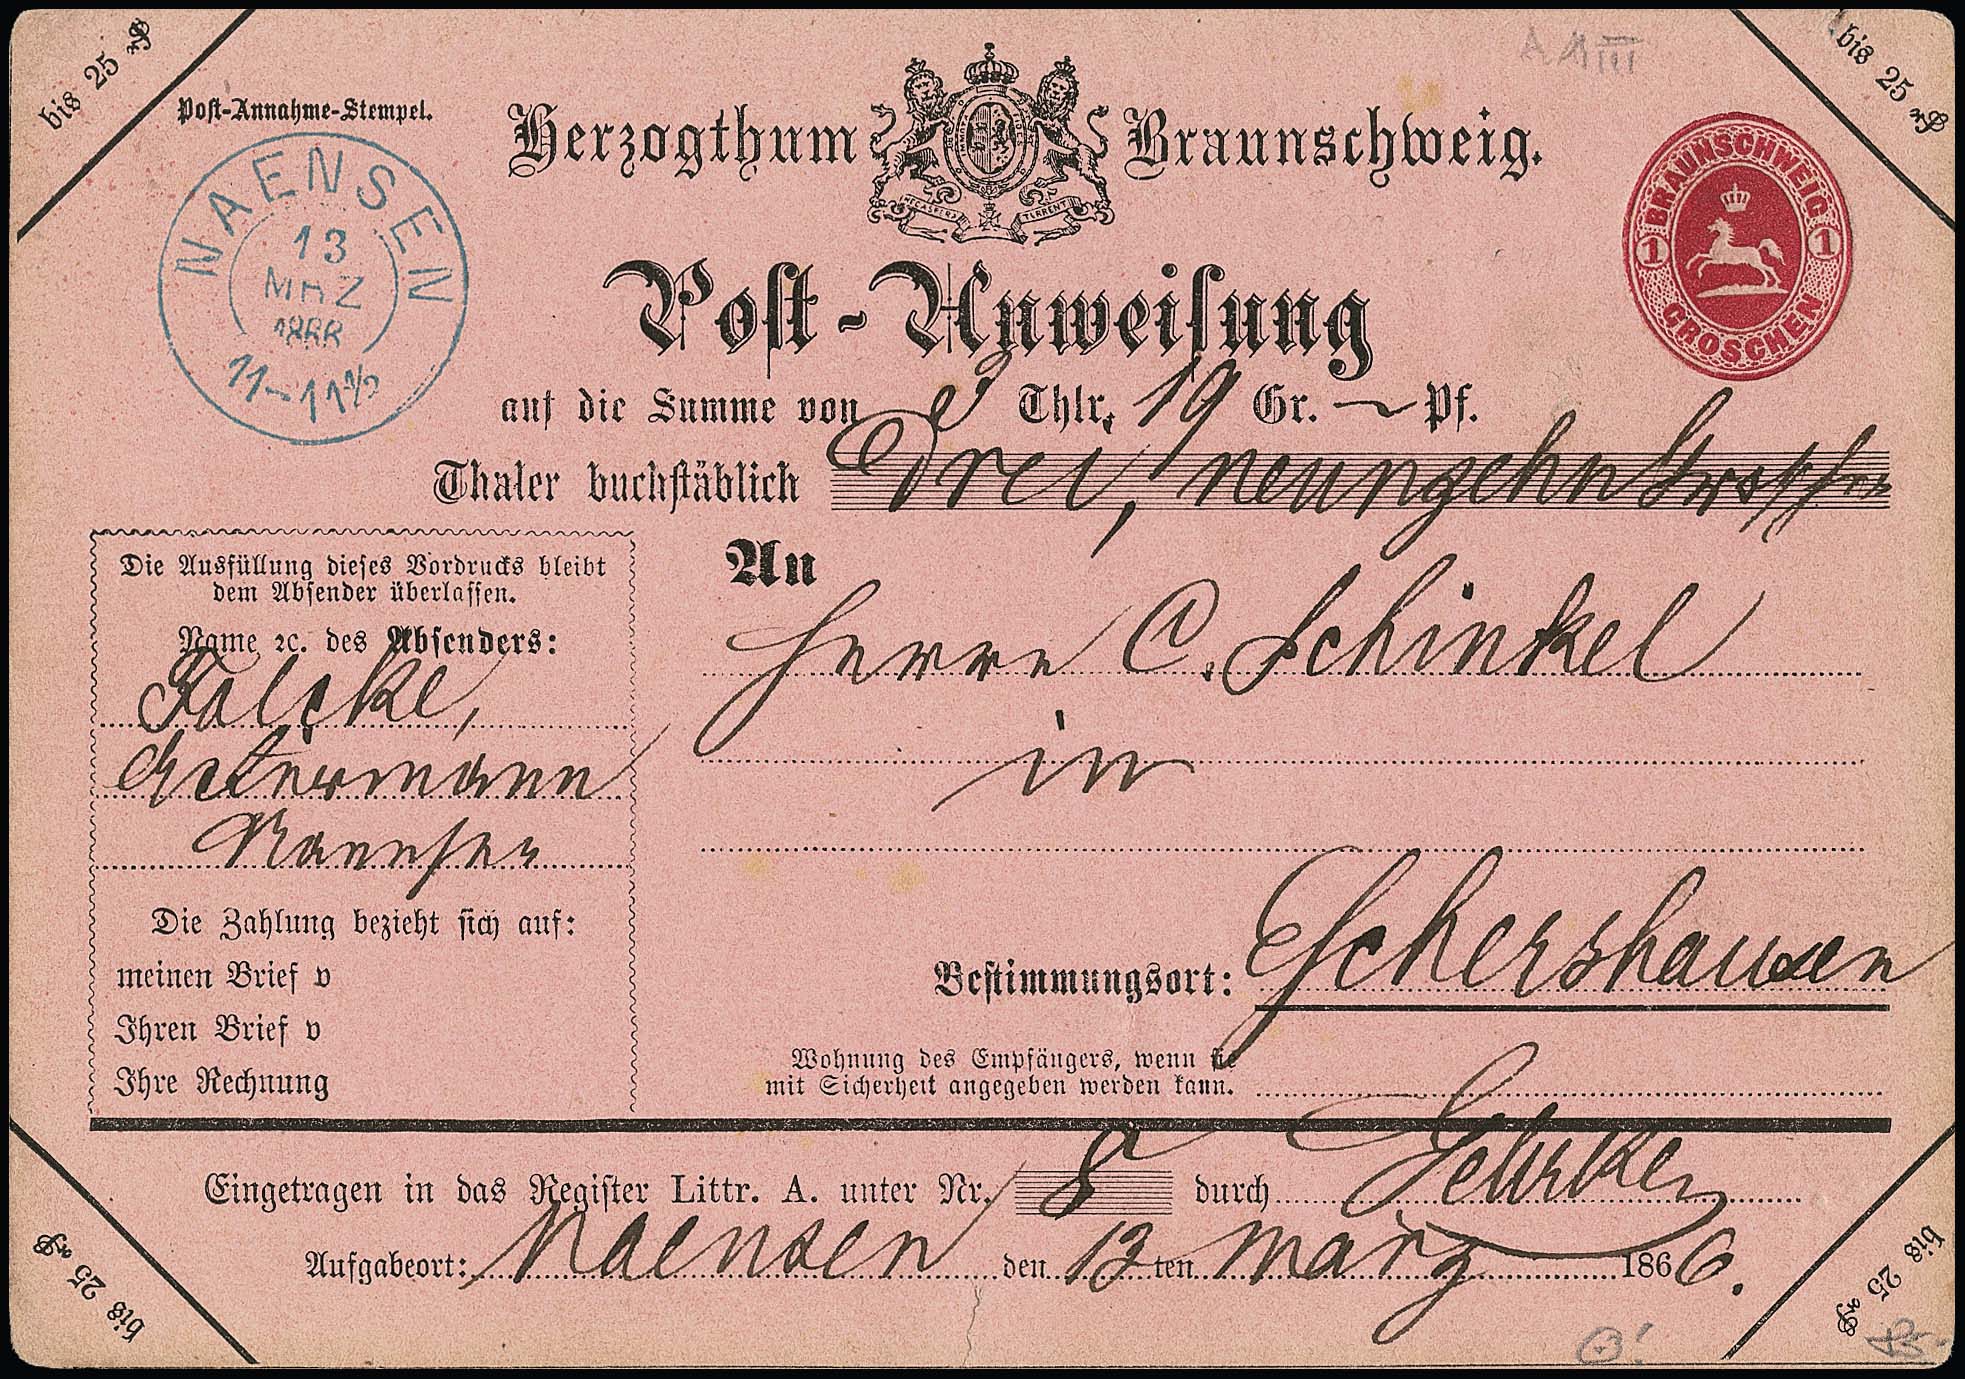 bis 25 ₰
bis 25 ₰
A III
Post-Annahme-Stempel.
Herzogthum Braunschweig.
NEC ASPERA TERRENT
NAENSEN
13
MRZ
1866
11-11½
BRAUNSCHWEIG
1 1
GROSCHEN
Post-Anweisung
auf die Summe von 3 Thlr. 19 Gr. — Pf.
Thaler buchstäblich Drei, neunzehn Groschen
Die Ausfüllung dieses Vordrucks bleibt
dem Absender überlassen.
Name ꝛc. des Absenders:
Falcke,
Ackermann
Naensen
An
Herrn C. Schinkel
in
Die Zahlung bezieht sich auf:
meinen Brief v
Ihren Brief v
Ihre Rechnung
Bestimmungsort: Eschershausen
Wohnung des Empfängers, wenn sie
mit Sicherheit angegeben werden kann.
Eingetragen in das Register Littr. A. unter Nr. 8 durch Gehrke
Aufgabeort: Naensen den 13 ten März 1866.
bis 25 ₰
bis 25 ₰